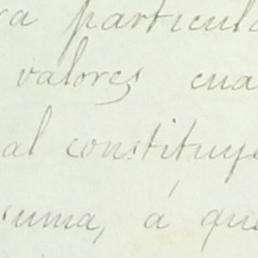 ra particula
valores cua
al constituye
suma, á que